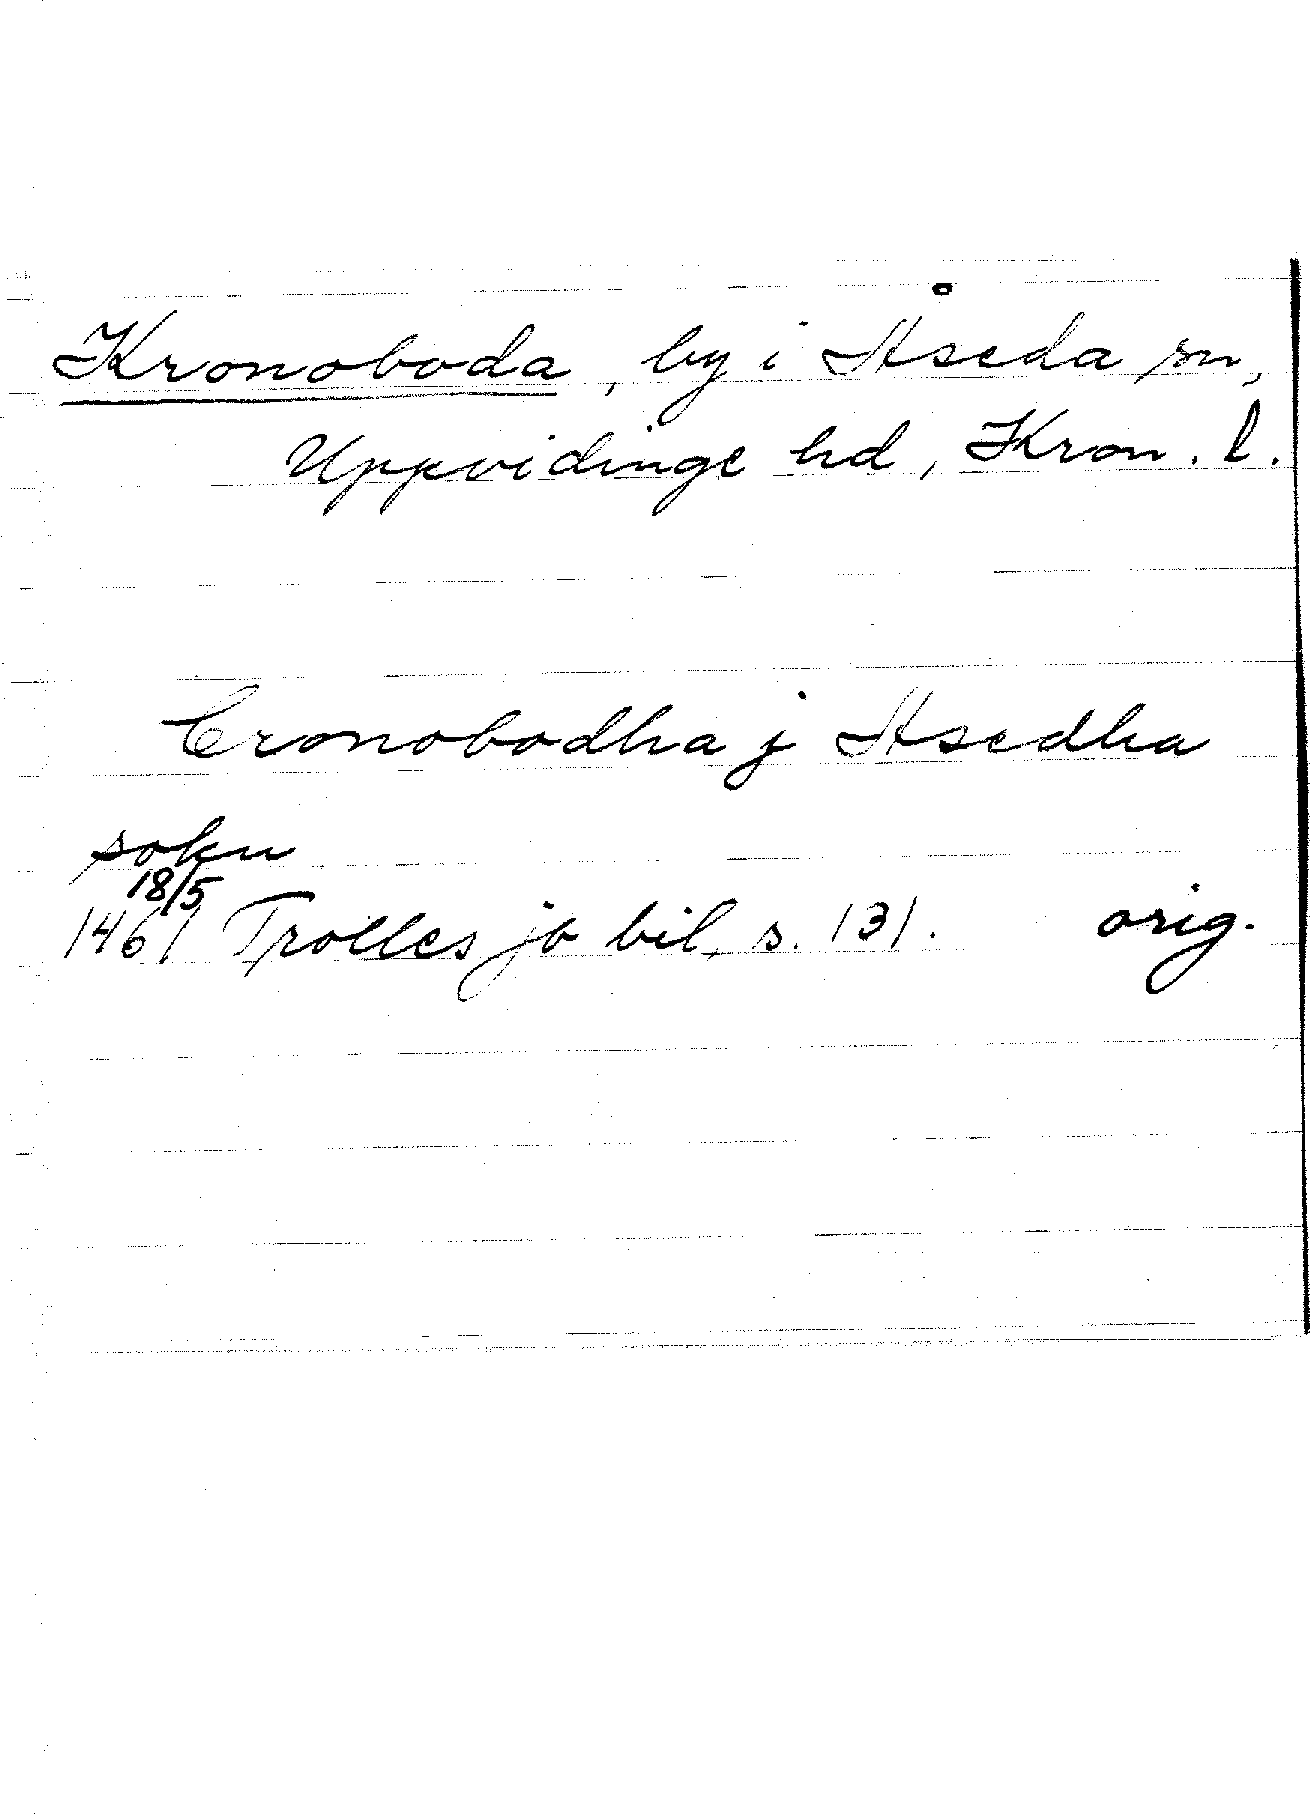 Kronoboda, by i Åseda sn,
Uppvidinge hd, Kron. l.
Cronobodha j Asedha
sokn
18/5
1461 Trolles jb bil, s. 131. orig.